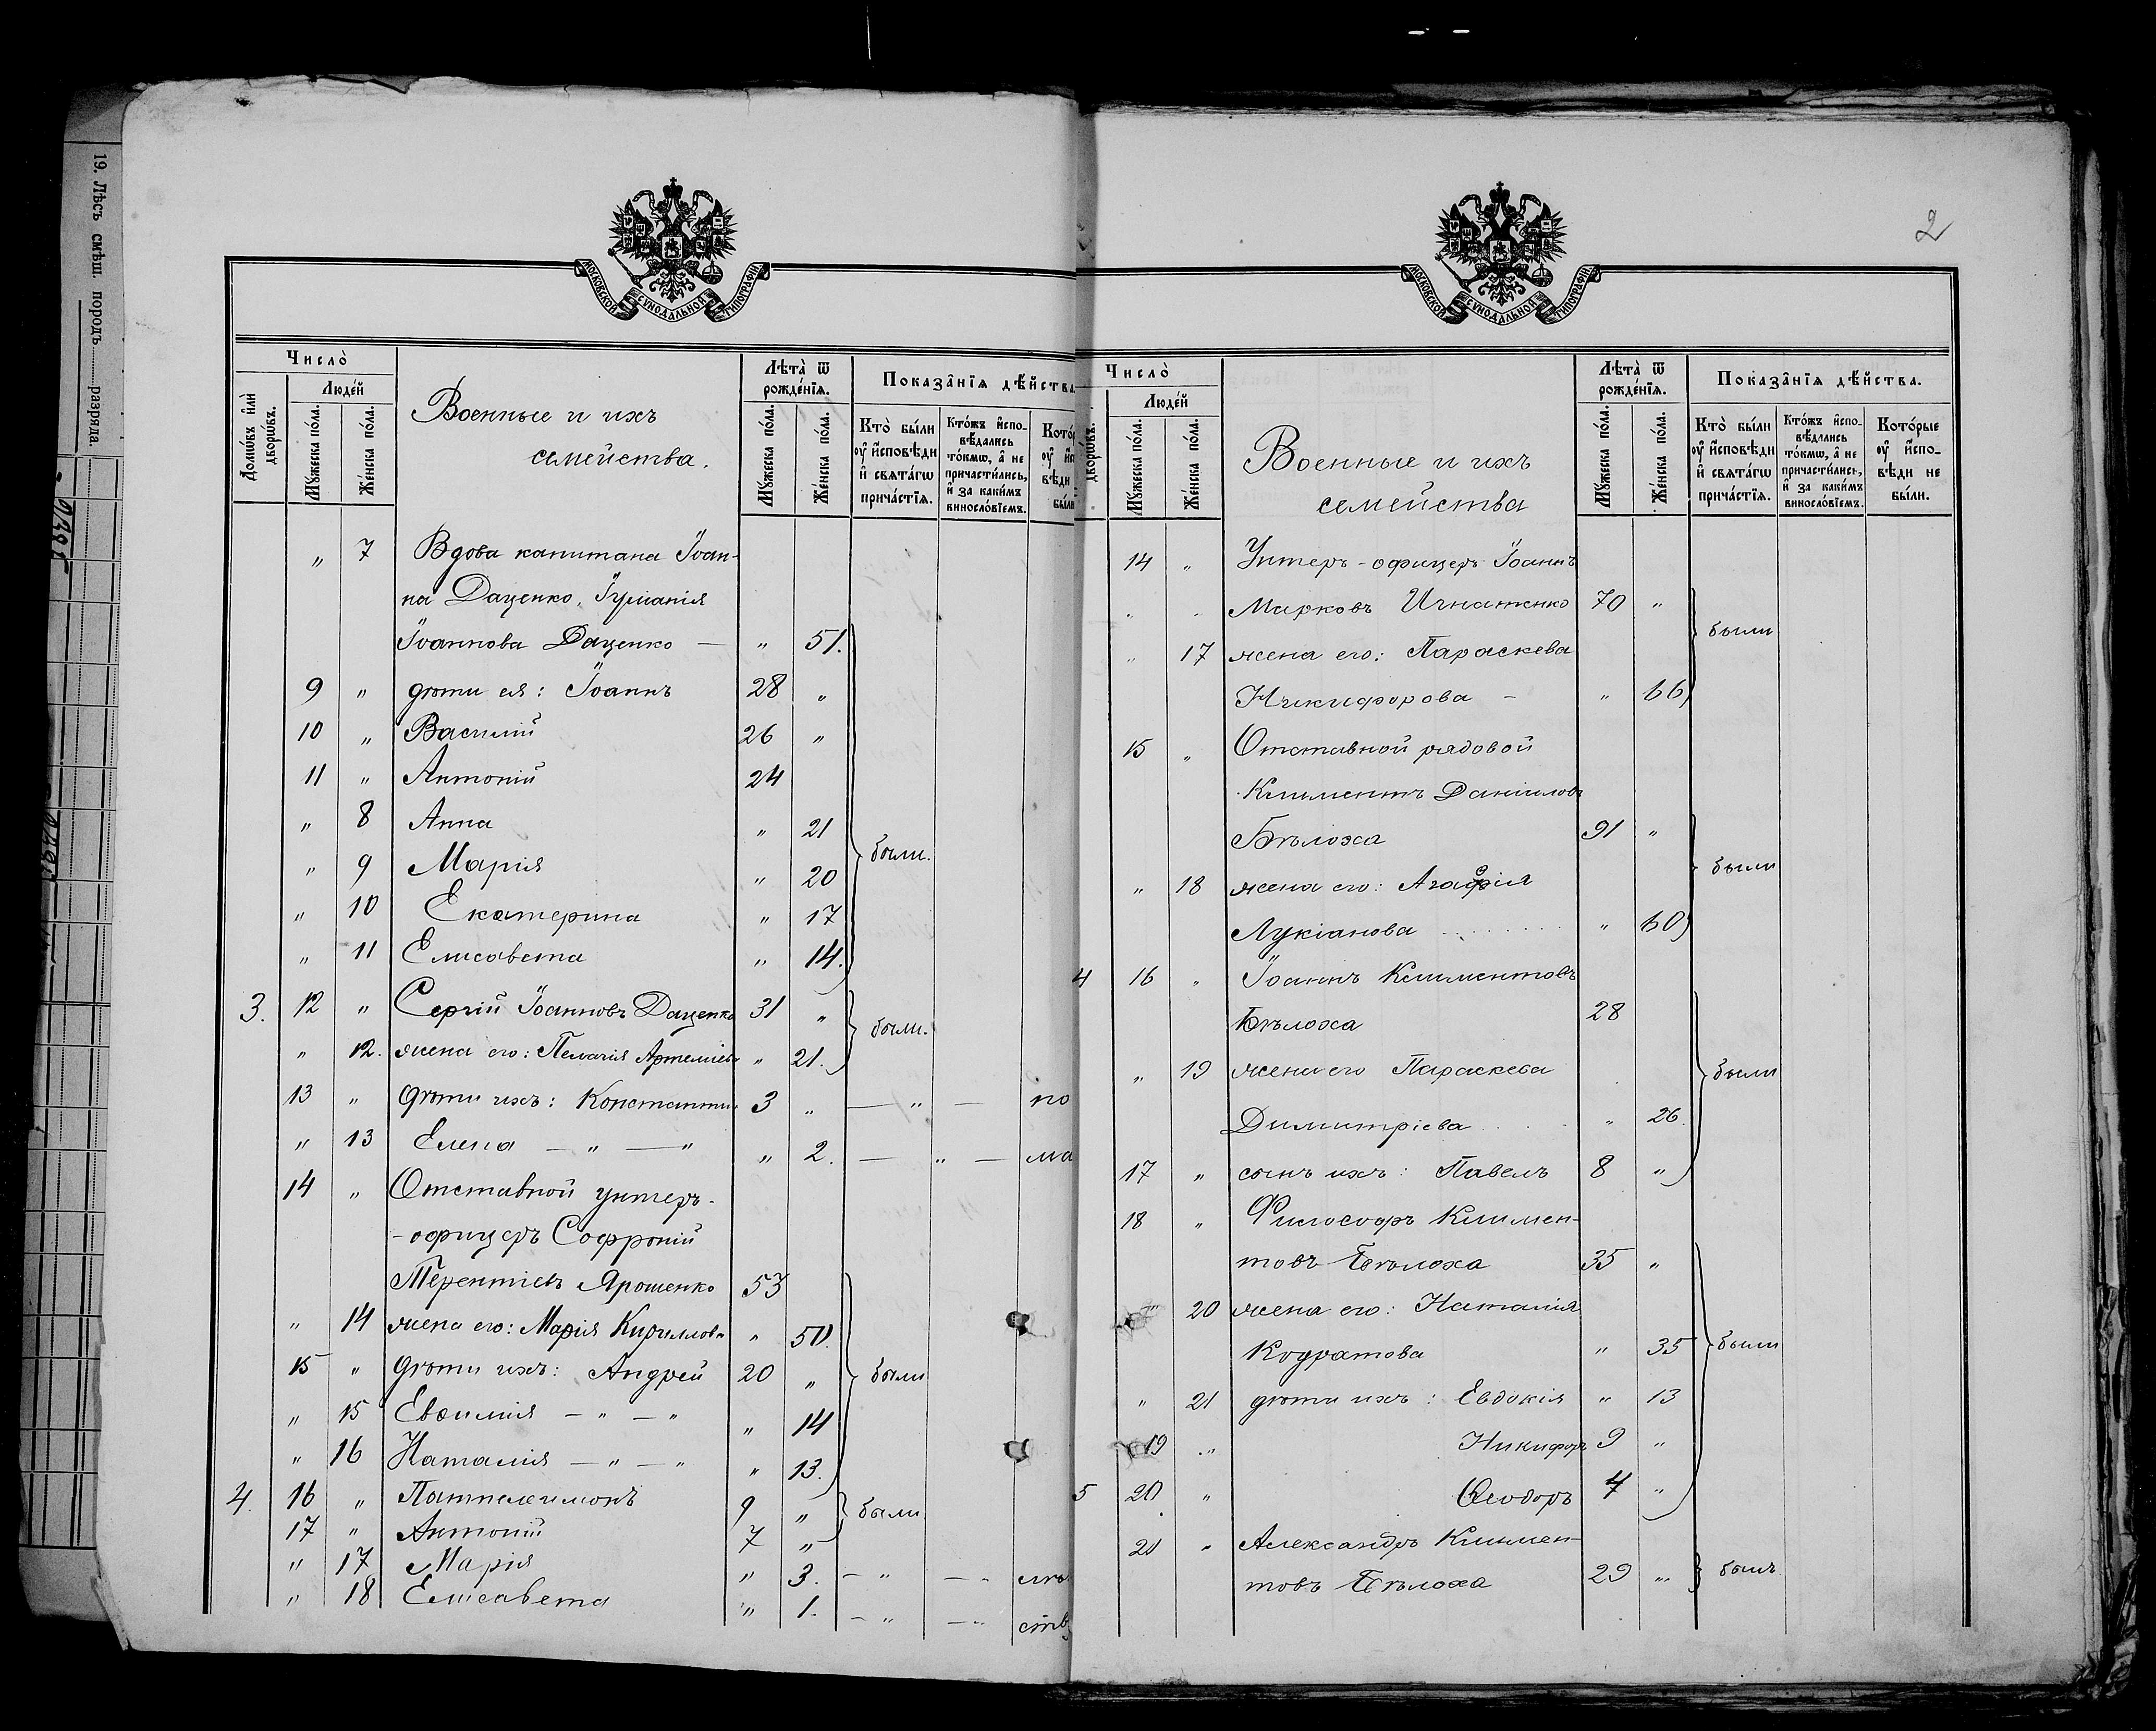 19. Лѣсъ смѣш. породъ разряда.
МОСКОВСКОЙ СѴНОДАЛЬНОЙ ТИПОГРАФІИ.
Число̀
Люде́й
Домѡ́въ и҆лѝ дворѡ́въ.
Мꙋ́жеска по́ла.
Же́нска по́ла.
Военные и ихъ
семейства.
Лѣ́та ѿ рожде́нїѧ.
Мꙋ́жеска по́ла.
Же́нска по́ла.
Показа̂нїѧ дѣ́йства
Кто̀ бы́ли ᲂу҆ и҆́сповѣди и҆ свѧта́гѡ прича́стїѧ.
Кто́жъ и҆спо-вѣ́дались то́кмѡ, а҆ не причасти́лись, и҆ за каки́мъ виносло́вїемъ.
„ 7 Вдова капитана Іоан-
на Даценко, Іуліанія
Іоаннова Даценко — „ 51.
9 „ дѣти ея: Іоаннъ 28 „
10 „ Василій 26 „
11 „ Антоній 24
„ 8 Анна „ 21
„ 9 Марія „ 20 были.
„ 10 Екатерина „ 17
„ 11 Елисавета „ 14.
3. 12 „ Сергій Іоанновъ Даценко 31 „ были.
„ 12. жена его: Пелагія Артеміева „ 21.
13 „ дѣти ихъ: Константин 3 „ — „ — по
„ 13 Елена — „ — „ „ 2. — „ — ма
14 „ Отставной унтеръ-
-офицеръ Софроній
Терентіевъ Ярошенко 53
„ 14 жена его: Марія Кириллова „ 50.
15 „ дѣти ихъ: Андрей 20 „ были
„ 15 Евѳимія — „ — „ „ 14
„ 16 Наталія — „ — „ „ 13.
4. 16 „ Пантелеимонъ 9 „ были
17 „ Антоній 7 „
„ 17 Марія „ 3. — „ — „
„ 18 Елисавета „ 1. — „ — „
2
МОСКОВСКОЙ СѴНОДАЛЬНОЙ ТИПОГРАФІИ.
Число̀
Люде́й
дворѡ́въ.
Мꙋ́жеска по́ла.
Же́нска по́ла.
Военные и ихъ
семейства
Лѣ́та ѿ рожде́нїѧ.
Мꙋ́жеска по́ла.
Же́нска по́ла.
Показа̂нїѧ дѣ́йства.
Кто̀ бы́ли ᲂу҆ и҆́сповѣди и҆ свѧта́гѡ прича́стїѧ.
Кто́жъ и҆спо-вѣ́дались то́кмѡ, а҆ не причасти́лись, и҆ за каки́мъ виносло́вїемъ.
Кото́рые ᲂу҆ и҆́спо-вѣди не бы́ли.
14 „ Унтеръ-офицеръ Іоаннъ
Марковъ Игнатенко 70 „ были
„ 17 жена его: Параскева
Никифорова — „ 66
15 „ Отставной рядовой
Климентъ Даніиловъ
Бѣлоха 91 „ были
„ 18 жена его: Агафія
Лукіанова „ 60
4 16 „ Іоаннъ Климентовъ
Бѣлоха 28
„ 19 жена его Параскева были
Димитріева „ 26.
17 „ сынъ ихъ: Павелъ 8 „
18 „ Философъ Климен-
товъ Бѣлоха 35 „
„ 20 жена его: Наталія
Кодратова „ 35 были
„ 21 дѣти ихъ: Евдокія „ 13
19 „ Никифоръ 9 „
5 20 „ Ѳеодоръ 4 „
21 „ Александръ Климен-
товъ Бѣлоха 29 „ былъ